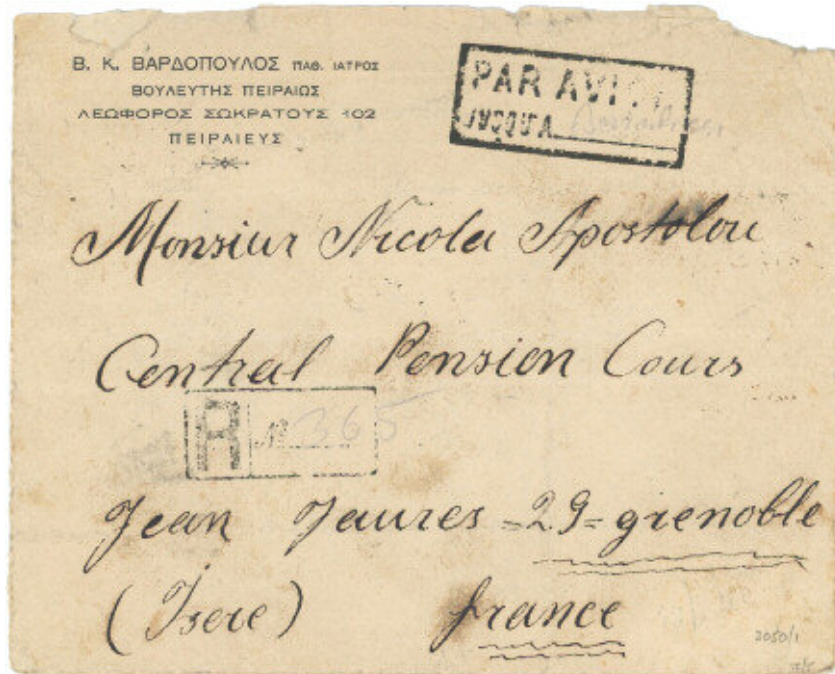 Β. Κ. ΒΑΡΔΟΠΟΥΛΟΣ ΠΑΘ. ΙΑΤΡΟΣ
ΒΟΥΛΕΥΤΗΣ ΠΕΙΡΑΙΩΣ
ΛΕΩΦΟΡΟΣ ΣΩΚΡΑΤΟΥΣ 102
ΠΕΙΡΑΙΕΥΣ
PAR AVION
JUSQU'A
Monsieur Nicola Apostolou
Central Pension Cours
R No 365
Jean Jaures =29= grenoble
(Isere) france
2050/1